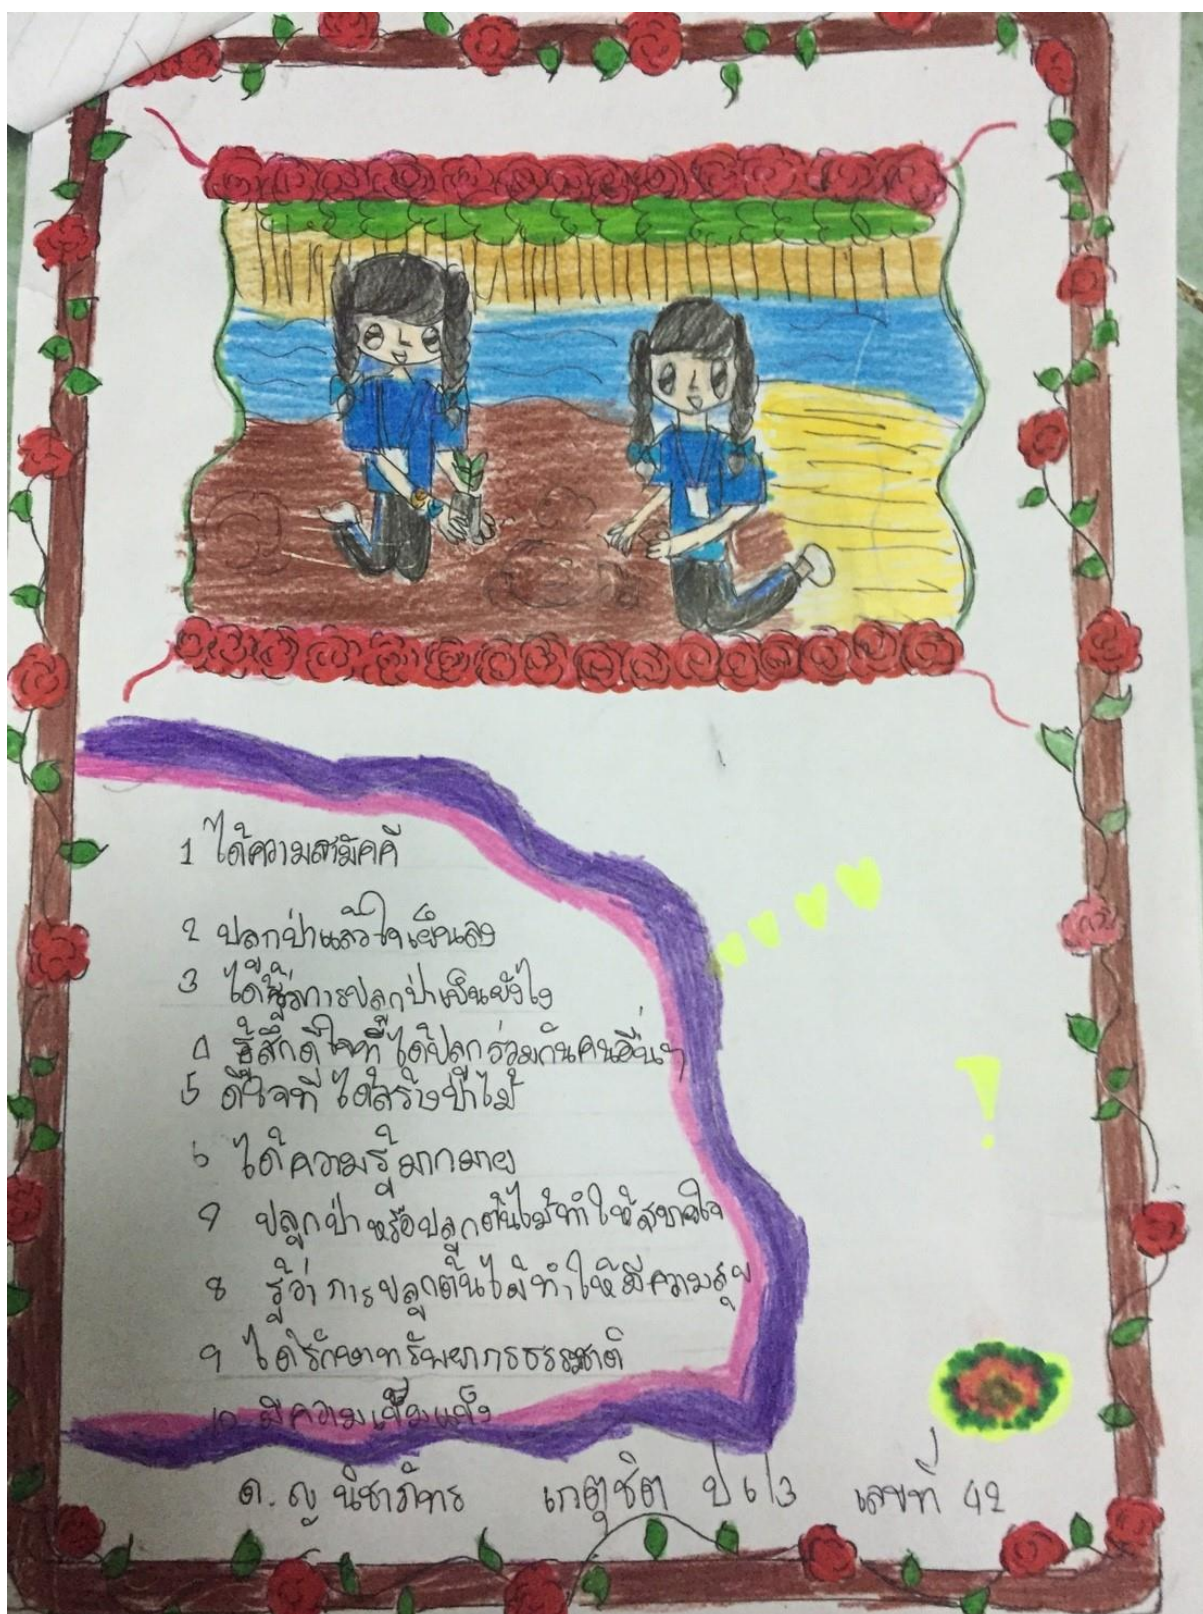 1 ได้ความสามัคคี
2 ปลูกป่าแล้วใจเย็นลง
3 ได้รู้ว่าการปลูกป่าเป็นยังไง
4 รู้สึกดีใจที่ได้ปลูกร่วมกันคนอื่นๆ
5 ดีใจที่ได้สร้างป่าไม้
6 ได้ความรู้มากมาย
7 ปลูกป่าหรือปลูกต้นไม้ทำให้สบายใจ
8 รู้ว่าการปลูกต้นไม้ทำให้มีความสุข
9 ได้รักษาทรัพยากรธรรมชาติ
10 มีความเข้มแข็ง
ด.ญ นิชาภัทร เกตุชิต ป 6/3 เลขที่ 42